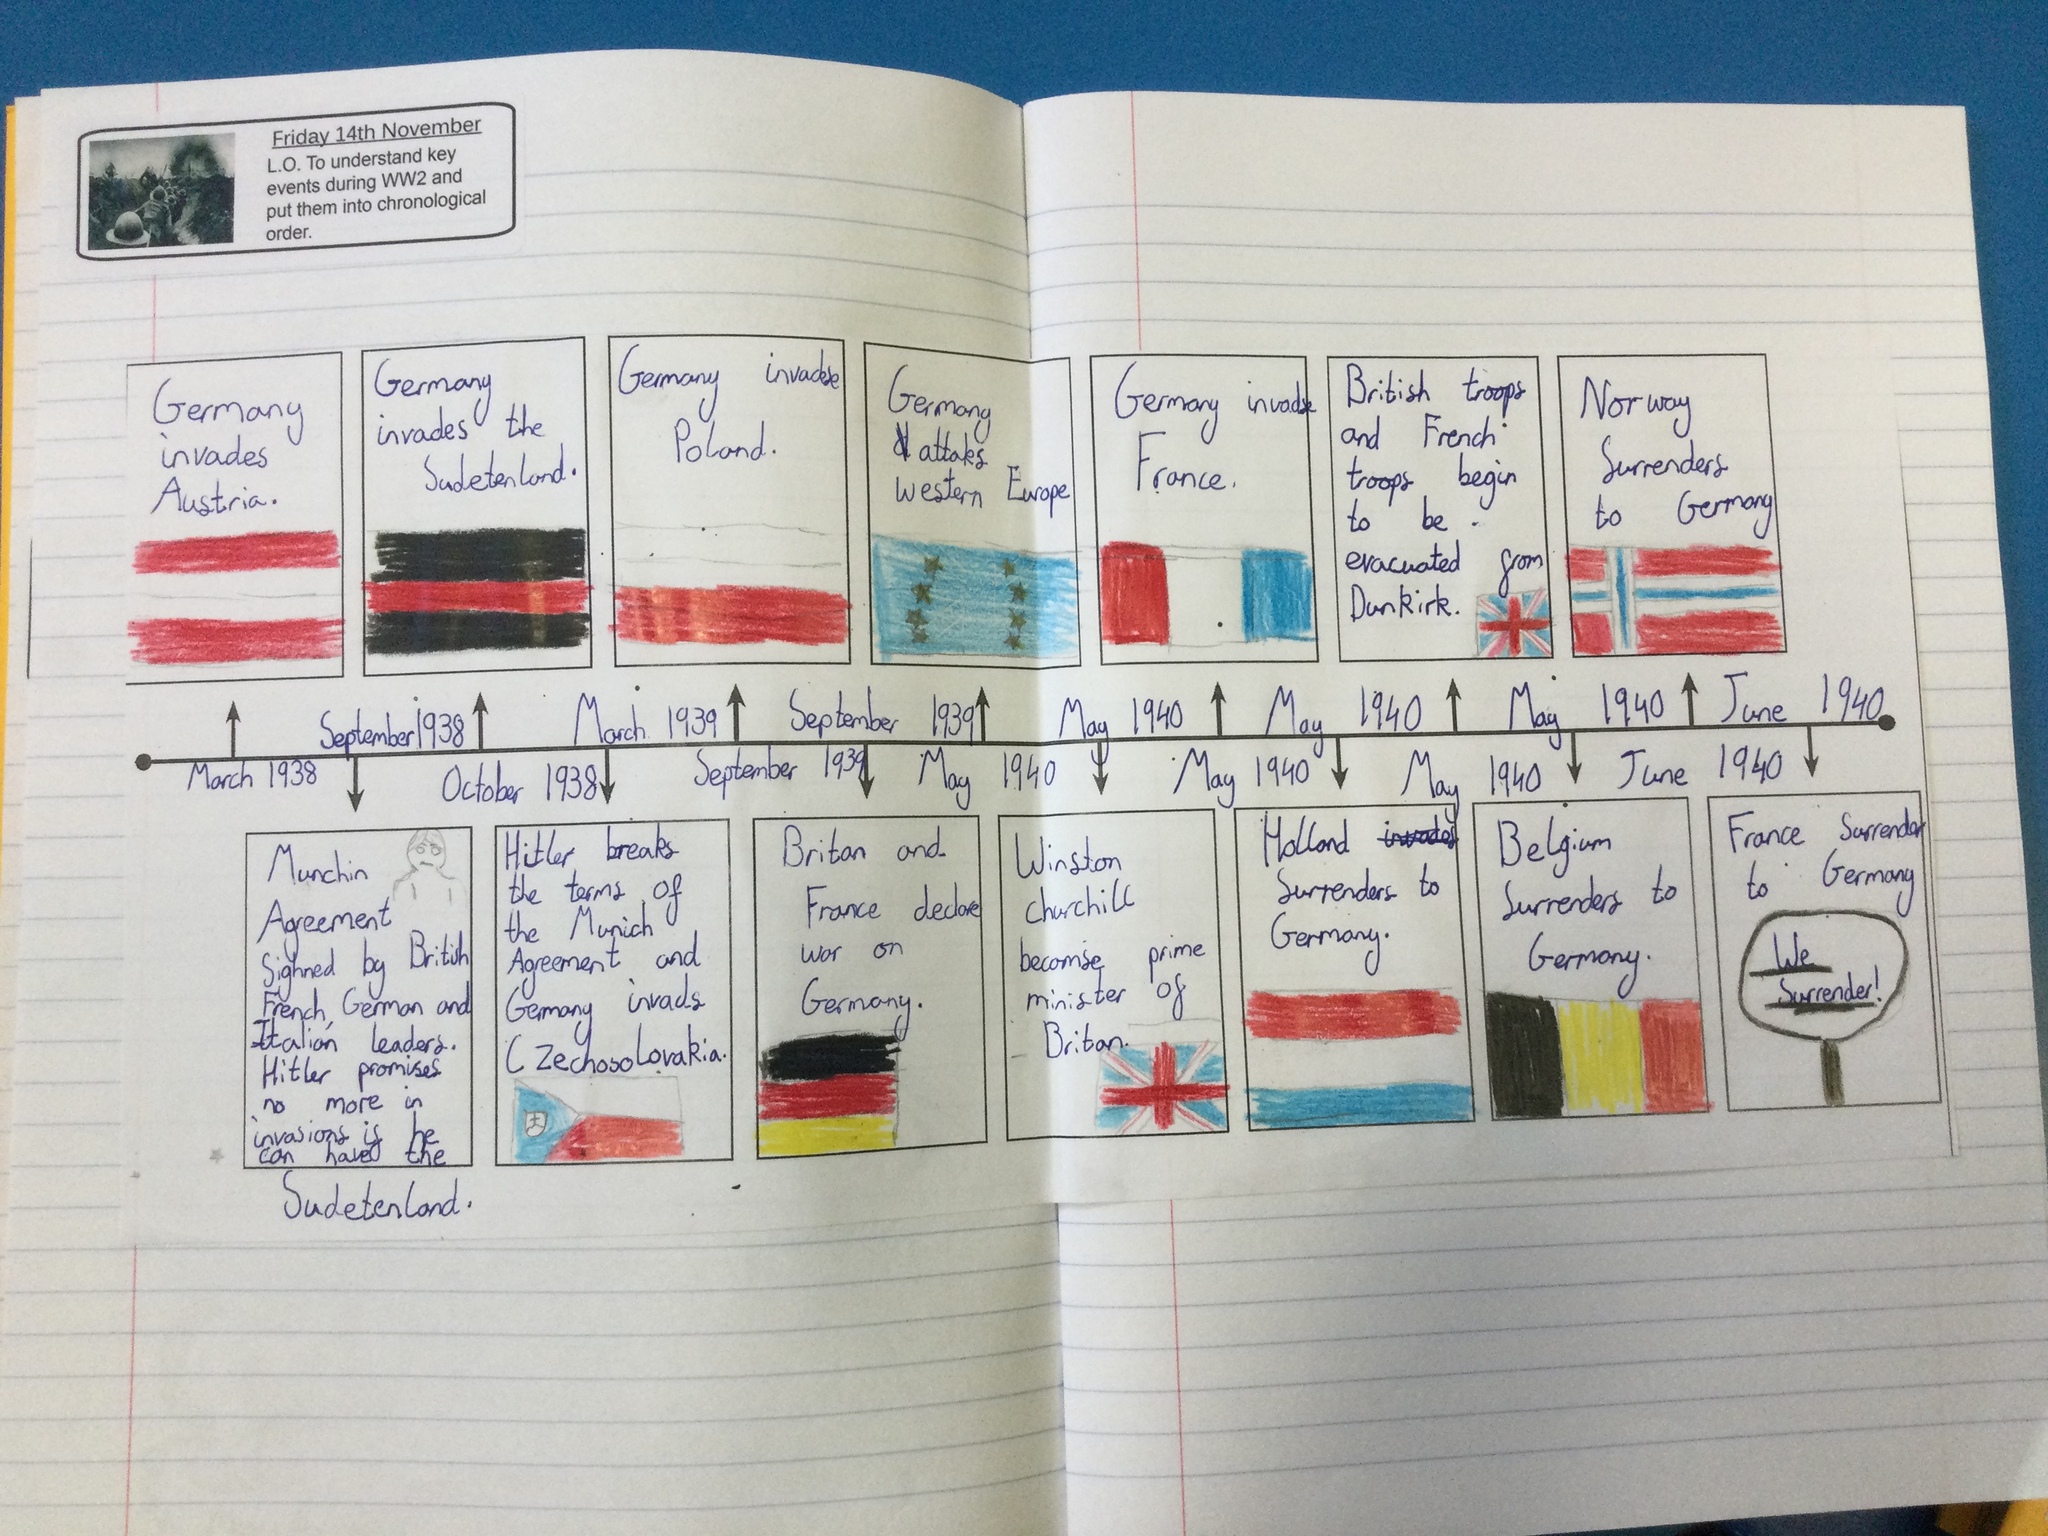 Friday 14th November
L.O. To understand key
events during WW2 and
put them into chronological
order.
Germany
invades
Austria.
Germany
invades the
Sudetenland.
Germany invades
Poland.
Germany
attaks
western Europe
Germany invades
France.
British troops
and French
troops begin
to be
evacuated from
Dunkirk.
Norway
Surrenders
to Germany
September 1938
March 1939
September 1939
May 1940
May 1940
May 1940
June 1940
March 1938
October 1938
September 1939
May 1940
May 1940
May 1940
June 1940
Munchin
Agreement
Sighned by British
French, German and
Italian leaders.
Hitler promises
no more in
invasions is he
can have the
Sudetenland.
Hitler breaks
the terms of
the Munich
Agreement and
Germany invads
Czechosolovakia.
Britan and
France declare
war on
Germany.
Winston
churchill
becomse prime
minister of
Britan.
Holland invades
Surrenders to
Germany.
Belgium
Surrenders to
Germany.
France Surrender
to Germany
We
Surrender!